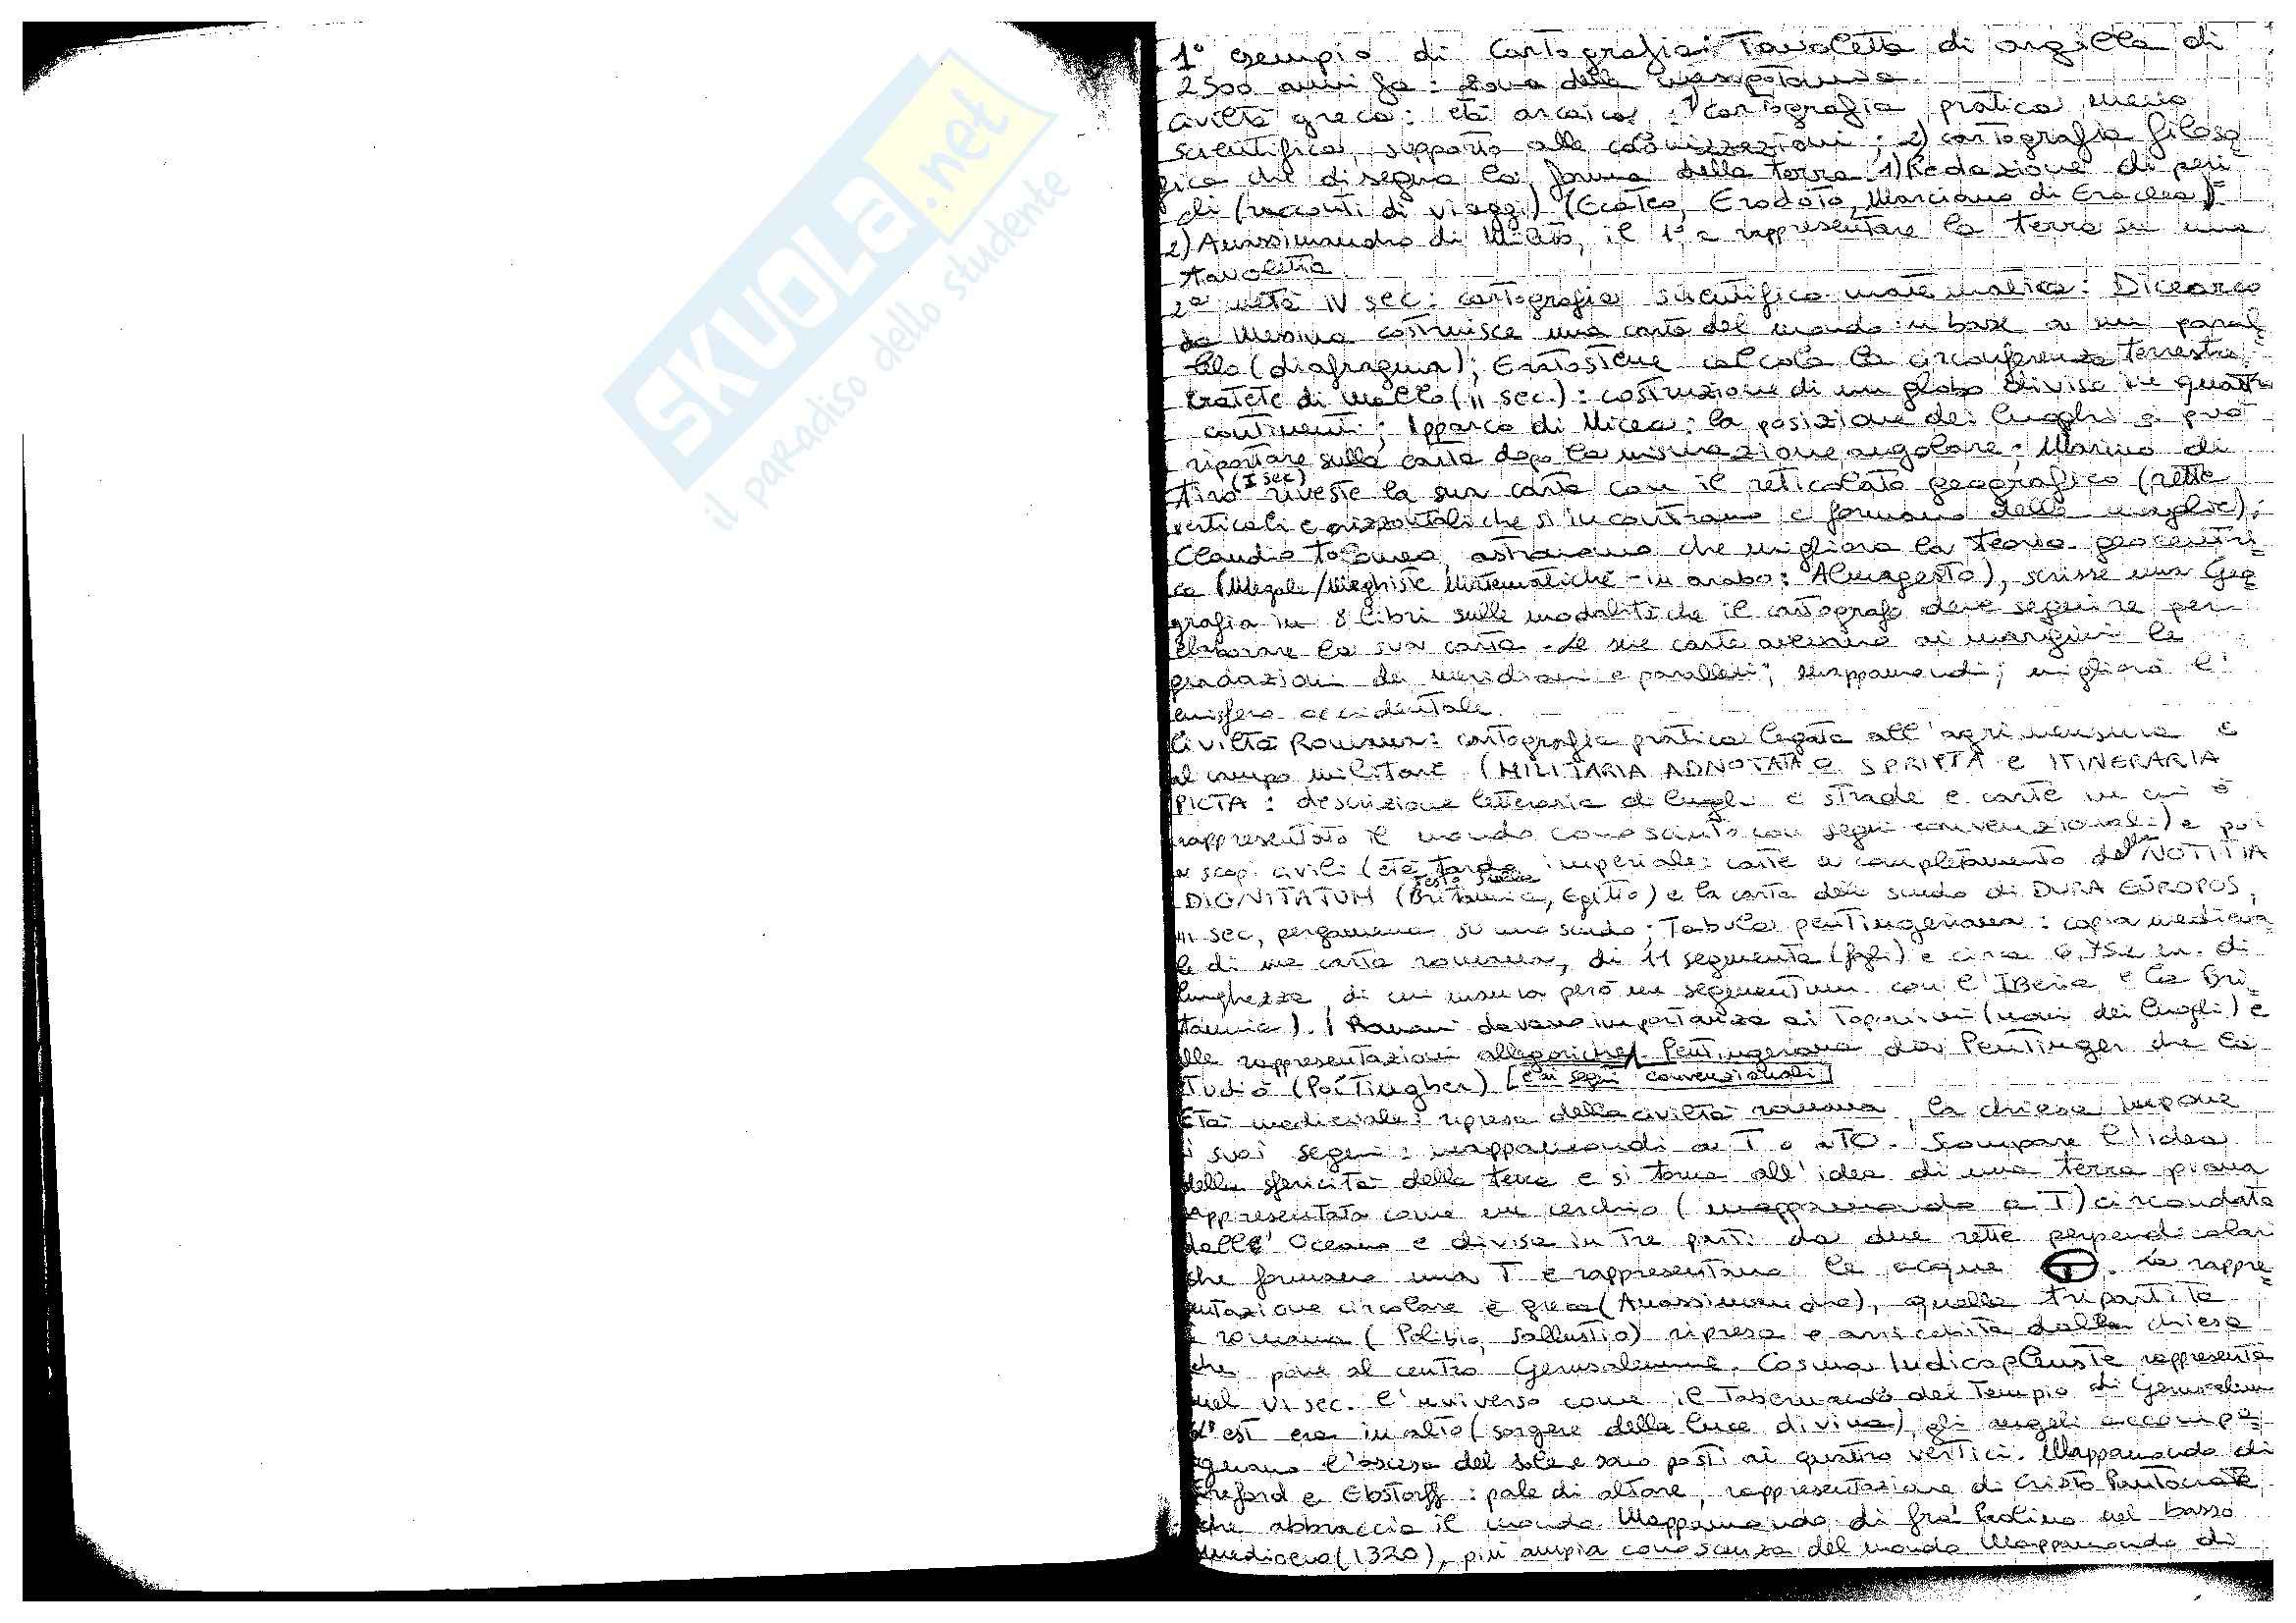 SKUOLA.net
il paradiso dello studente
1° esempio di Cartografia: Tavoletta di argilla di
2500 anni fa: della mesopotamia.
civiltà greca: età arcaica: 1) cartografia pratica meno
scientifica, supporto alle colonizzazioni; 2) cartografia filoso
fica che disegna la forma della terra. 1) Redazione di peri
pli (racconti di viaggi) (Ecateo, Erodoto, Marciano di Eraclea)
2) Anassimandro di Mileto, il 1° a rappresentare la terra su una
tavoletta.
2a metà IV sec: cartografia scientifico-matematica: Dicearco
da Messina costruisce una carta del mondo in base a un paral=
lelo (diaframma); Eratostene calcola la circonferenza terrestre
Cratete di Mallo (II sec.): costruzione di un globo diviso in quattro
continenti; Ipparco di Nicea: la posizione dei luoghi si può
riportare sulla carta dopo la misurazione angolare; Marino di
Tiro (I sec) riveste la sua carta con il reticolato geografico (rette
verticali e orizzontali che si incontrano e formano delle maglie);
Claudio Tolomeo, astronomo che migliora la teoria geocentri=
ca (Megale/Meghiste Matematiche - in arabo: Almagesto), scrisse una Geo
grafia in 8 libri sulle modalità che il cartografo deve seguire per
elaborare la sua carta. Le sue carte avevano ai margini le
gradazioni dei meridiani e paralleli; mappamondi; migliorò l'
emisfero occidentale.
Civiltà Romana: cartografia pratica legata all'agrimensura e
al campo militare (MILITARIA ADNOTATA o SPRIPTA e ITINERARIA
PICTA: descrizione letteraria di luoghi e strade e carte in cui è
rappresentato il mondo conosciuto con segni convenzionali) e poi
a scopi civili (età tardo imperiale: carte a completamento della NOTITIA
DIGNITATUM (Britannia, Egitto) e la carta dello scudo di DURA EUROPOS,
III sec, pergamena su uno scudo; Tabula peutingeriana: copia medieva
le di una carta romana, di 11 segmenta (fogli) e circa 6,75 m. di
lunghezza, di cui manca però un segmentum con l'Iberia e la Bri=
tannia). I Romani davano importanza ai Toponimi (nomi dei luoghi) e
alle rappresentazioni allegoriche. Peutingeriana da Peutinger che la
studiò (Poitingher) [e ai segni convenzionali]
Età medievale: ripresa della civiltà romana, la chiesa impone
i suoi segni: mappamondi a T o a TO. Scompare l'idea
della sfericità della terra e si torna all'idea di una terra piana
rappresentata come un cerchio (mappamondo a T) circondata
dall'Oceano e divisa in tre parti da due rette perpendicolari
che formano una T e rappresentano le acque. La rappre=
sentazione circolare è greca (Anassimandro), quella tripartita
è romana (Polibio, Sallustio) ripresa e arricchita dalla chiesa
che pone al centro Gerusalemme. Cosma Indicopleuste rappresenta
nel VI sec. l'universo come il Tabernacolo del Tempio di Gerusalem
L'est era in alto (sorgere della luce divina), gli angeli accompa=
gnano l'ascesa del sole e sono posti ai quattro vertici. Mappamondo di
Ereford e Ebstorff: pale di altare, rappresentazione di Cristo Pantocrate
che abbraccia il mondo. Mappamondo di fra' Paolino nel basso
medioevo (1320), più ampia conoscenza del mondo. Mappamondo di